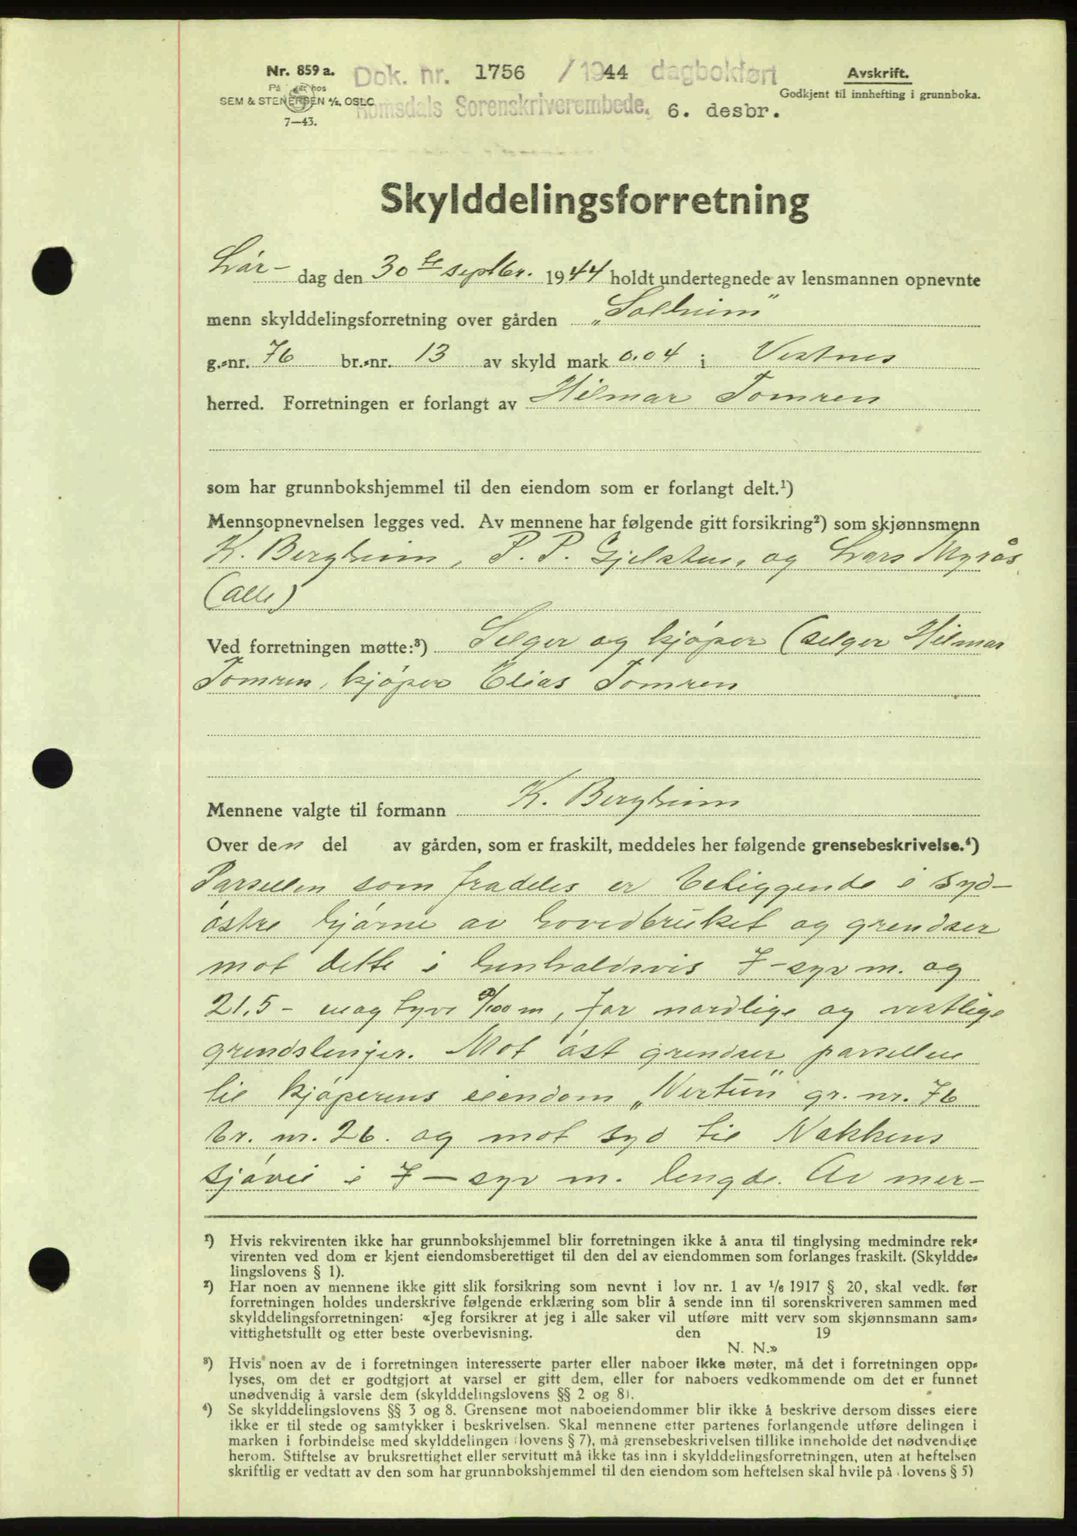 Nr. 859 a.
Dok. nr. 1756 / 1944 dagbokført
Avskrift.
På hos
SEM & STENERSEN A/S, OSLO
Godkjent til innhefting i grunnboka.
7—43.
Romsdals Sorenskriverembede, 6. desbr.
Skylddelingsforretning
Lör- dag den 30 te septbr. 1944 holdt undertegnede av lensmannen opnevnte
menn skylddelingsforretning over gården „Solheim"
g.-nr. 76 br.-nr. 13 av skyld mark 0.04 i Vestnes
herred. Forretningen er forlangt av Hilmar Tomren
som har grunnbokshjemmel til den eiendom som er forlangt delt.¹)
Mennsopnevnelsen legges ved. Av mennene har følgende gitt forsikring²) som skjønnsmenn
K. Bergheim, P. P. Gjelsten, og Lars Myrås
(alle)
Ved forretningen møtte:³) Selger og kjöper (selger Hilmar
Tomren, kjöper Elias Tomren
Mennene valgte til formann K. Bergheim
Over den del av gården, som er fraskilt, meddeles her følgende grensebeskrivelse.⁴)
Parsellen som fradeles er beliggende i syd-
östre hjörne av hovedbruket og grendser
mot dette i henholdsvis 7-syv m. og
21,5- m, for nordlige og vestlige
grendslenjer. Mot öst grendser parsellen
til kjöperens eiendom „Vertün" gr. nr. 76
br. nr. 26. og mot syd til Nakkens
sjövei i 7 — syv m. lengde. Av mer-
¹) Hvis rekvirenten ikke har grunnbokshjemmel blir forretningen ikke å anta til tinglysing medmindre rek-
virenten ved dom er kjent eiendomsberettiget til den del av eiendommen som forlanges fraskilt. (Skyldde-
lingslovens § 1).
²) Har noen av mennene ikke gitt slik forsikring som nevnt i lov nr. 1 av 1/6 1917 § 20, skal vedk. før
forretningen holdes underskrive følgende erklæring som blir å sende inn til sorenskriveren sammen med
skylddelingsforretningen: «Jeg forsikrer at jeg i alle saker vil utføre mitt verv som skjønnsmann sam-
vittighetsfullt og etter beste overbevisning. den 19
N. N.»
³) Hvis noen av de i forretningen interesserte parter eller naboer ikke møter, må det i forretningen opp-
lyses, om det er godtgjort at varsel er gitt dem, eller for naboers vedkommende om det er funnet
unødvendig å varsle dem (skylddelingslovens §§ 2 og 8).
⁴) Se skylddelingslovens §§ 3 og 8. Grensene mot naboeiendommer blir ikke å beskrive dersom disses eiere
ikke er til stede og samtykker i beskrivelsen. Skal mennene etter partenes forlangende utføre delingen i
marken i forbindelse med skylddelingen (lovens § 7), må grensebeskrivelsen tillike inneholde det nødvendige
herom. Stiftelse av bruksrettighet eller servitutt må ikke tas inn i skylddelingsforretningen, uten at heftelsen
skriftlig er vedtatt av den som har grunnbokshjemmel til den eiendom som heftelsen skal hvile på (lovens § 5)